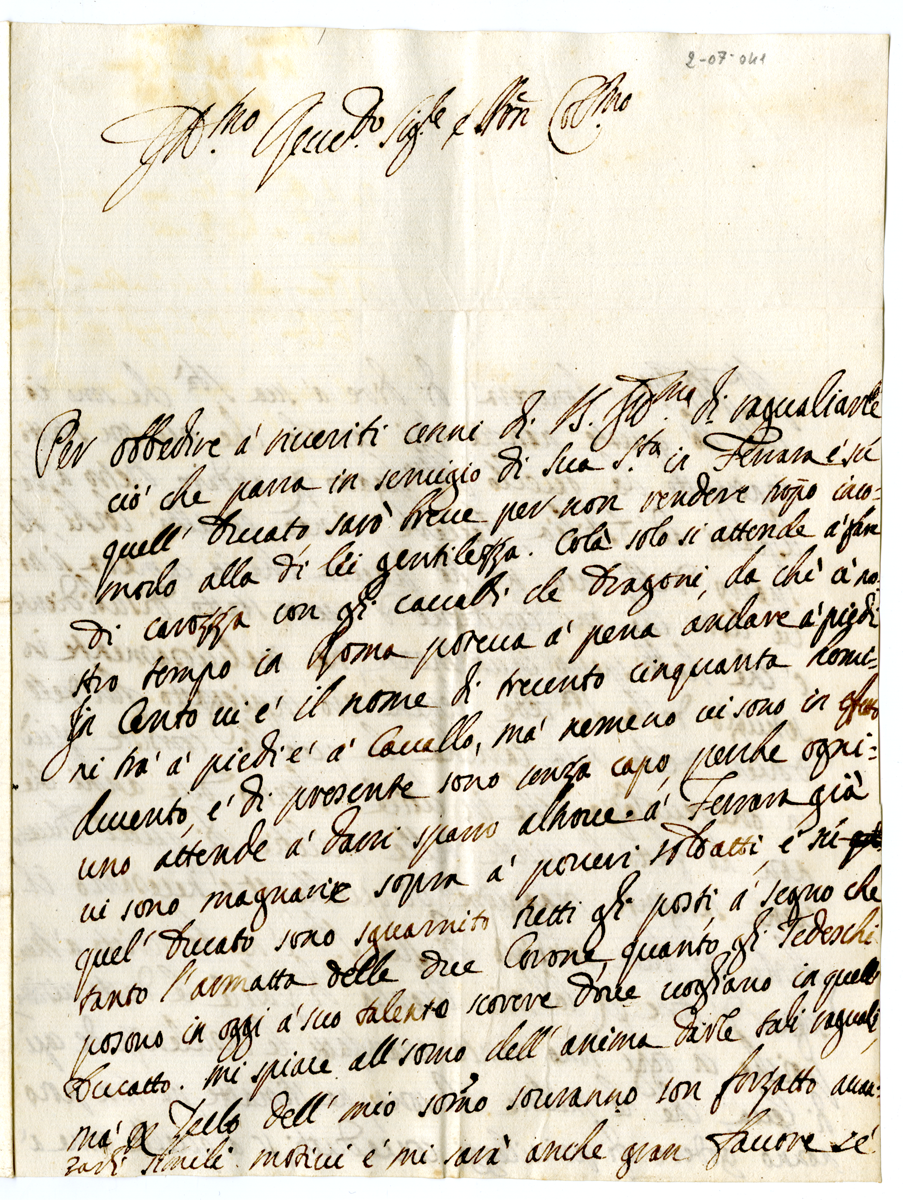 2-07-041
Ill.mo Reved.mo Sig.re e Pron Coll.mo
Per obbedire á riveriti cenni di V. Ill.ma di ragualiarle
ció che passa in servigio di Sua S.ta in Ferrara é sú
quell' Ducato saró breve per non rendere tropo inco-
modo alla di lei gentilezza. Colà solo si attende á far
di carozza con gli cavalli de Dragoni, da chè á no-
stro tempo in Roma poteva á pena andare á piedi
In Cento vi é il nome di trecento cinquanta homi-
ni trá á piedi é á Cavallo, má nemeno vi sono in effetto
ducento, é di presente sono senza capo, perche ogni-
uno attende á darsi spasso altrove. á Ferrara già
vi sono magnarie sopra á poveri soldatti, é sú
quel' Ducato sono sguarnito tutti gli posti á segno che
tanto l'armatta delle due Corone, quanto gli Tedeschi
posono in oggi á suo talento scorere dove vogliano in quello
Ducatto. Mi spiace all' somo dell' anima darle tali raguali,
má per Zello dell' mio somo souranno son forzatto avan-
zarli simili motivi é mi sarà anche gran favore sé